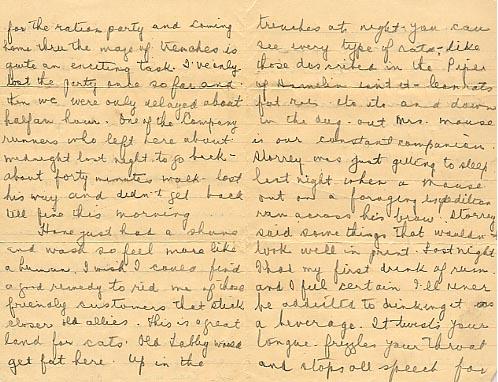 for the ration party and coming
home thru the maze of trenches is
quite an exciting task. I've only
lost the party once so far and
then we were only delayed about
half an hour. One of the Company
runners who left here about
midnight last night to go back-
about forty minutes walk - lost
his way and didn't get back
till five this morning
Have just had a shave
and wash so feel more like
a human. I wish I could find
a good remedy to rid me of those
friendly customers that stick
closer old allies. This is a great
land for cats. Old Tabby would
get fat here. Up in the
trenches at night you can
see every type of rats - like
those described in the Piper
of Hamelin isn't it - lean rats
fat rats. etc etc and down
in the dug-out Mrs. Mouse
is our constant companion.
Storrey was just getting to sleep
last night when a mouse
out on a foraging expedition
ran across his brow. Storrey
said some things that wouldn't
look well in print. Last night
I had my first drink of rum
and I feel certain I'll never
be addicted to drinking it as
a beverage. It twists your
tongue. frizzles your throat
and stops all speech for